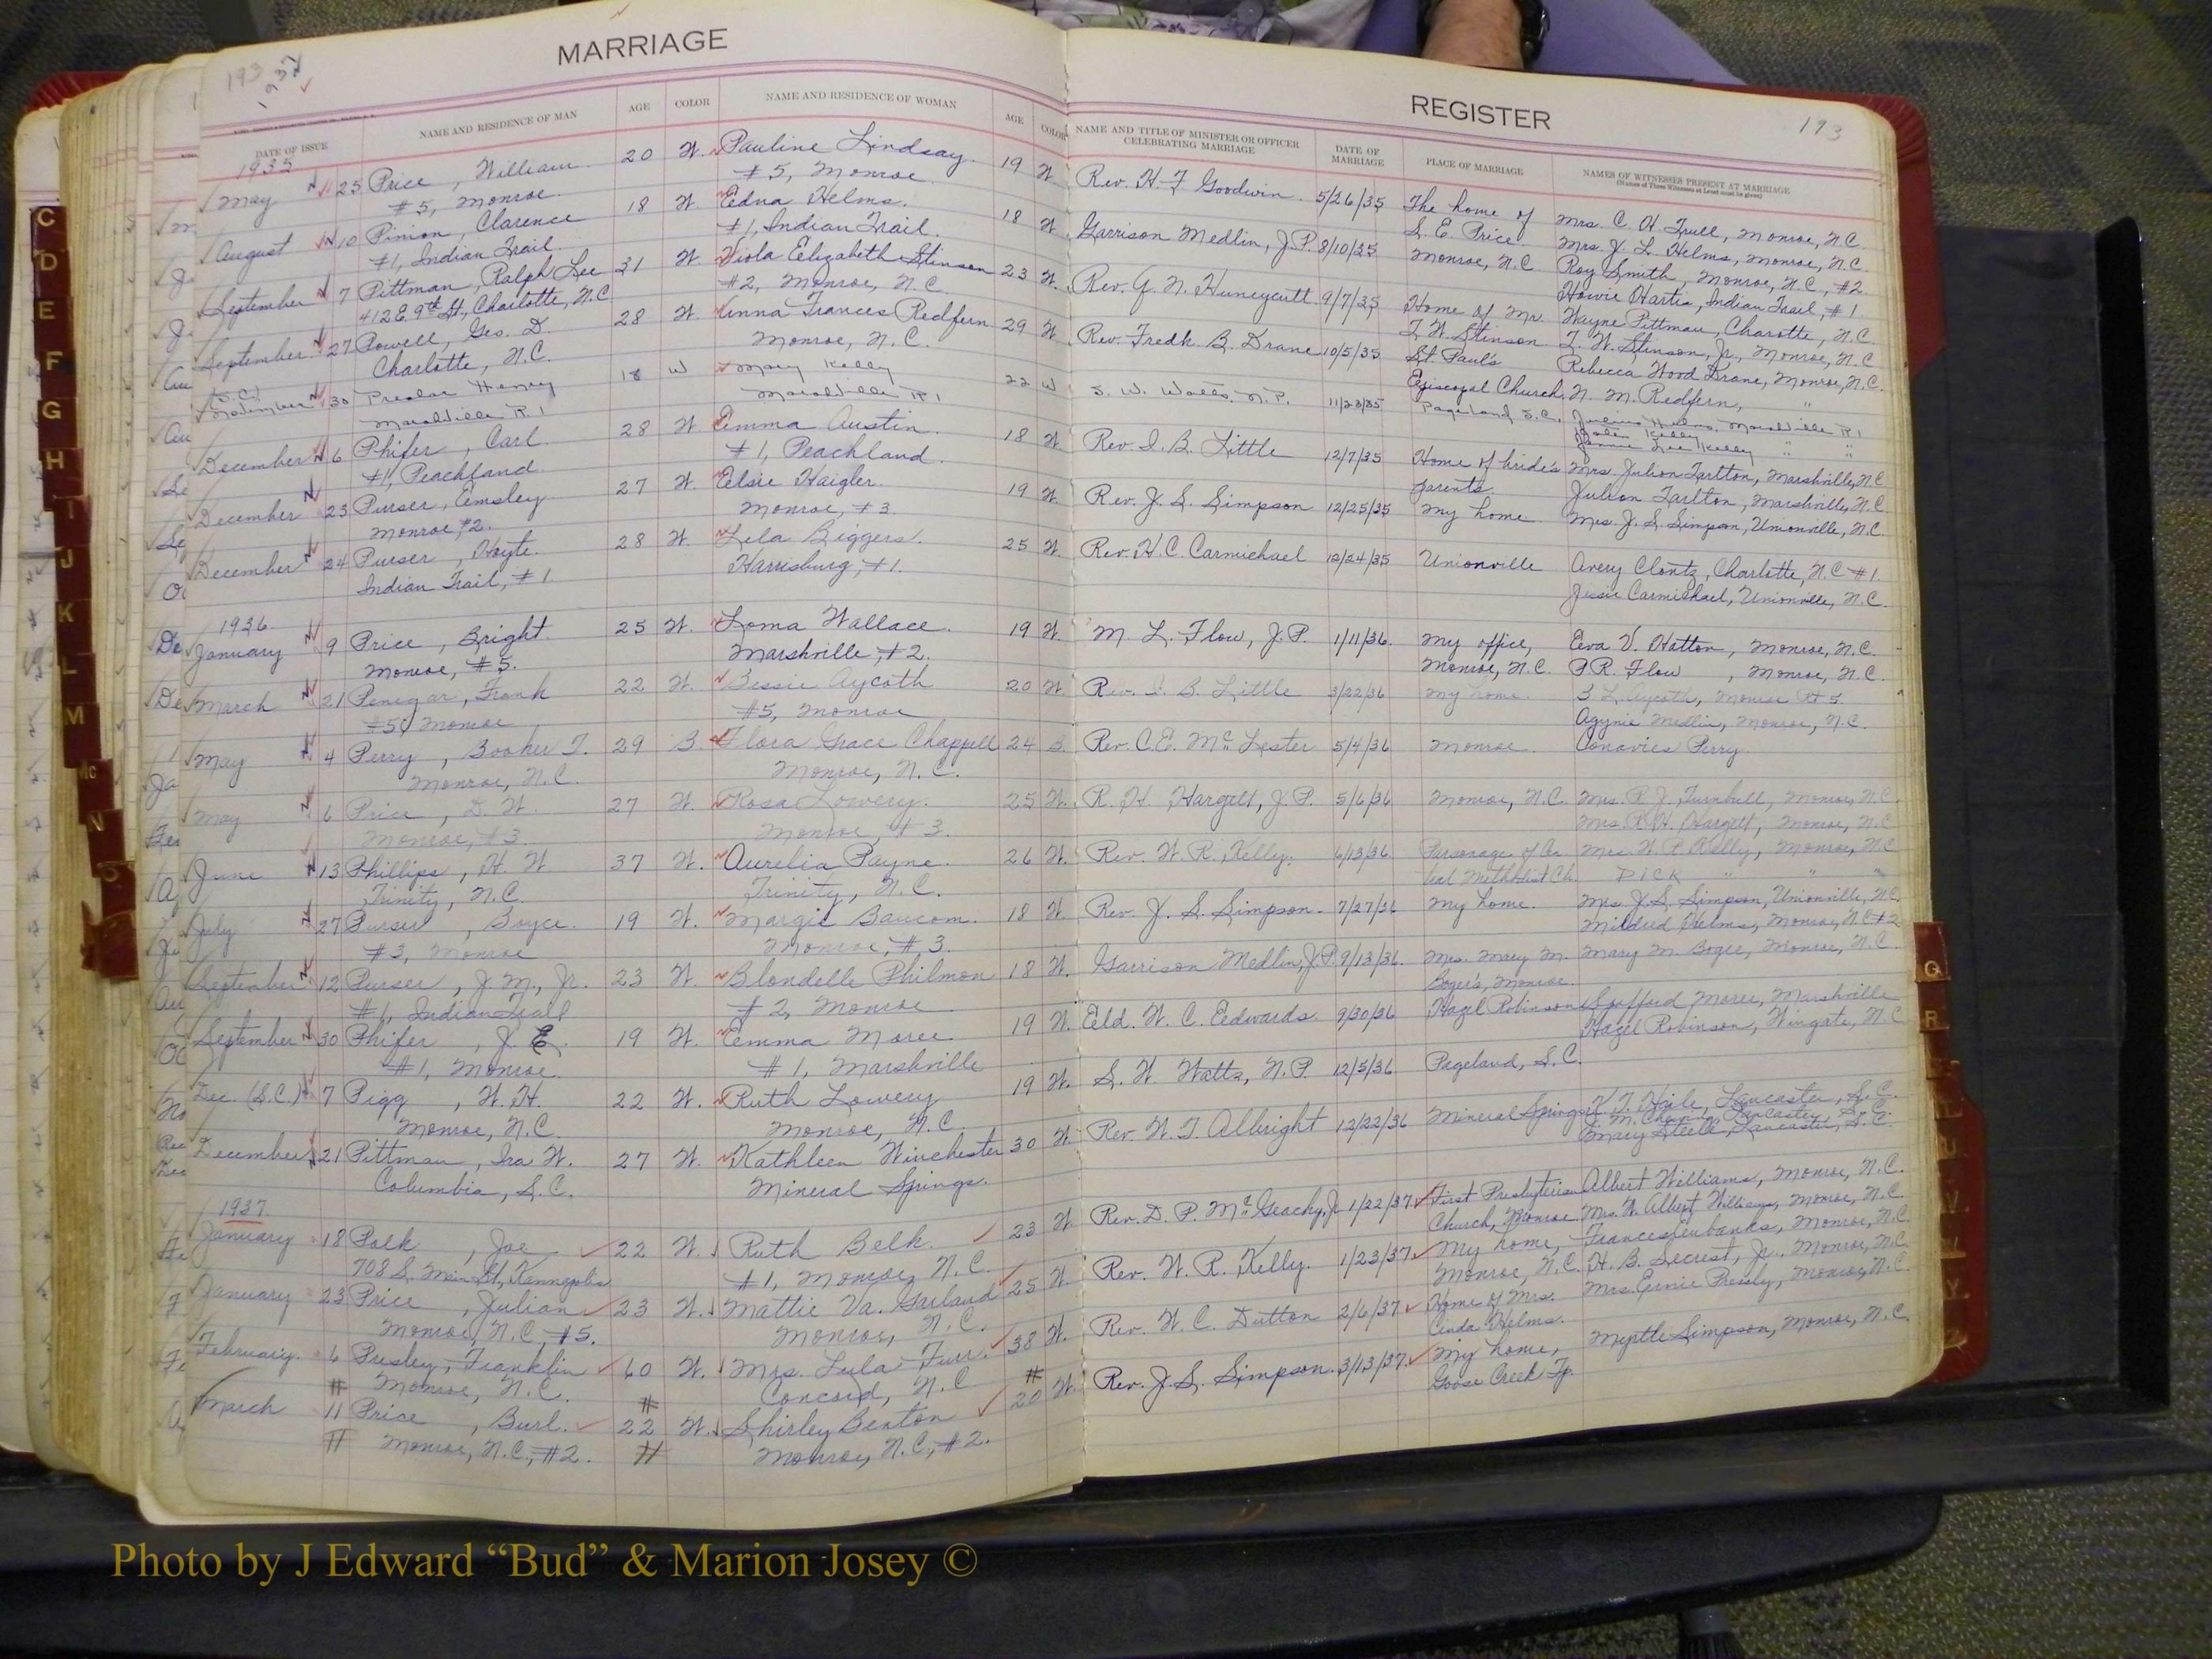 MARRIAGE
193
1937
DATE OF ISSUE
NAME AND RESIDENCE OF MAN
AGE
COLOR
NAME AND RESIDENCE OF WOMAN
AGE
COLOR
REGISTER
193
NAME AND TITLE OF MINISTER OR OFFICER CELEBRATING MARRIAGE
DATE OF MARRIAGE
PLACE OF MARRIAGE
NAMES OF WITNESSES PRESENT AT MARRIAGE
(Names of Three Witnesses at Least must be given)
1935
May 25 Price, William 20 W. Pauline Lindsay 19 W. Rev. H. F. Goodwin 5/26/35 The home of Mrs. C. H. Trull, Monroe, N.C.
#5, Monroe #5, Monroe S. E. Price Mrs. J. L. Helms, Monroe, N.C.
August 10 Pinion, Clarence 18 W Edna Helms 18 W. Garrison Medlin, J.P. 8/10/35 Monroe, N.C. Roy Smith, Monroe, N.C., #2
#1, Indian Trail #1, Indian Trail. Howie Hartis, Indian Trail, #1
September 7 Pittman, Ralph Lee 31 W. Viola Elizabeth Stinson 23 W. Rev. G. N. Huneycutt 9/7/35 Home of Mr. Wayne Pittman, Charotte, N.C
412 E 9th St, Charlotte, N.C #2, Monroe, N.C. T. W. Stinson T. W. Stinson, Jr., Monroe, N.C
September 27 Powell, Geo. D. 28 W Anna Frances Redfern 29 W Rev. Fredk. B. Drane 10/5/35 St. Paul's Rebecca Wood Drane, Monroe, N.C.
Charlotte, N.C. Monroe, N.C. Episcopal Church N. M. Redfern, "
(S.C.)
November 30 Preslar Henry 18 W Mary Kelly 22 W S. W. Watts, N.P. 11/23/35 Pageland S.C. Julius Helms, Marshville R1
Marshville R.1 Marshville R1 Kelly " "
Jennie Lee Kelly " "
December 6 Phifer, Carl 28 W. Emma Austin 18 W. Rev. I. B. Little 12/7/35 Home of bride's Mrs. Julian Tarlton, Marshville, N.C
#1, Peachland #1, Peachland parents Julian Tarlton, Marshville, N.C.
December 23 Purser, Emsley 27 W. Elsie Haigler 19 W. Rev. J. S. Simpson 12/25/35 My home Mrs. J. S. Simpson, Unionville, N.C.
Monroe #2. Monroe, #3
December 24 Purser, Hoyte 28 W. Lela Biggers 25 W. Rev. H. C. Carmichael 12/24/35 Unionville Avery Clontz, Charlotte, N.C #1.
Indian Trail, #1 Harrisburg, #1. Jessie Carmichael, Unionville, N.C.
1936
January 9 Price, Bright 25 W. Loma Wallace 19 W M. L. Flow, J.P. 1/11/36 My office, Eva V. Hatton, Monroe, N.C.
Monroe, #5. Marshville, #2. Monroe, N.C. P.R. Flow, Monroe, N.C.
March 21 Penegar, Frank 22 W. Bessie Aycoth 20 W. Rev. I. B. Little 3/22/36 My home. B L Aycoth, Monroe Rt 5
#5, Monroe #5, Monroe Medlin, Monroe, N.C.
May 4 Perry, Booker T. 29 B. Flora Grace Chappell 24 B. Rev. C.E. McLester 5/4/36 Monroe Perry
Monroe, N.C. Monroe, N.C.
May 6 Price, D. W. 27 W. Rosa Lowery. 25 W. R. H. Hargett, J.P. 5/6/36 Monroe, N.C. Mrs. R. J. Turnbull, Monroe, N.C.
Monroe, #3 Monroe, #3. Mrs. R. H. Hargett, Monroe, N.C
June 13 Phillips, H. W. 37 W. Aurelia Payne 26 W. Rev. W. R. Kelly. 6/13/36 Parsonage of Mrs. W. R Kelly, Monroe, N.C
Trinity, N.C. Trinity, N.C. Methodist Ch. DICK " " "
July 27 Purser, Boyce. 19 W. Margie Baucom. 18 W. Rev. J. S. Simpson. 7/27/36 My home. Mrs J. S. Simpson, Unionville, N.C.
#3, Monroe Monroe, #3. Mildred Helms, Monroe, N.C #2
September 12 Purser, J. M., Jr. 23 W. Blondelle Philmon 18 W. Garrison Medlin, J.P. 9/13/36. Mrs. Mary M. Mary M. Boger, Monroe, N.C
#1, Indian Trail #2, Monroe Boger's, Monroe
September 30 Phifer, J. E. 19 W. Emma Moree 19 W. Eld. W. C. Edwards 9/30/36 Hazel Robinson Moree, Marshville
#1, Monroe #1, Marshville Hazel Robinson, Wingate, N.C
Dec. (S.C.) 7 Pigg, W. H. 22 W. Ruth Lowery 19 W. S. W. Watts, N.P. 12/5/36 Pageland, S.C.
Monroe, N.C. Monroe, N.C.
December 21 Pittman, Ira W. 27 W. Kathleen Winchester 30 W. Rev. W. T. Albright 12/22/36 Mineral Springs Lancaster, S.C.
Columbia, S.C. Mineral Springs. Lancaster, S.C.
Mary Steele, Lancaster, S.C.
1937
January 18 Polk, Joe 22 W. Ruth Belk 23 W Rev. D. P. McGeachy, Jr 1/22/37 First Presbyterian Albert Williams, Monroe, N.C.
708 S. Main St, Kannapolis #1, Monroe, N.C. Church, Monroe Mrs. W. Albert Williams, Monroe, N.C.
Frances Eubanks, Monroe, N.C
January 23 Price, Julian 23 W. Mattie Va. Garland 25 W. Rev. W. R. Kelly. 1/23/37 My home, H. B. Secrest, Jr., Monroe, N.C
Monroe, N.C., #5. Monroe, N.C. Monroe, N.C. Mrs. Ernie Pressly, Monroe, N.C.
February. 6 Presley, Franklin 60 W. Mrs. Lula Furr 38 W. Rev. W. C. Dutton 2/6/37 Home of Mrs.
# Monroe, N.C. # Concord, N.C # Cinda Helms.
March 11 Price, Burl. 22 W. Shirley Benton 20 W. Rev. J. S. Simpson. 3/13/37 My home, Myrtle Simpson, Monroe, N.C.
# Monroe, N.C., #2. # Monroe, N.C., #2. Goose Creek Tp.
C
D
E
F
G
H
I
J
K
L
M
Mc
N
Q
R
U
V
Y
Z
Photo by J Edward “Bud” & Marion Josey ©